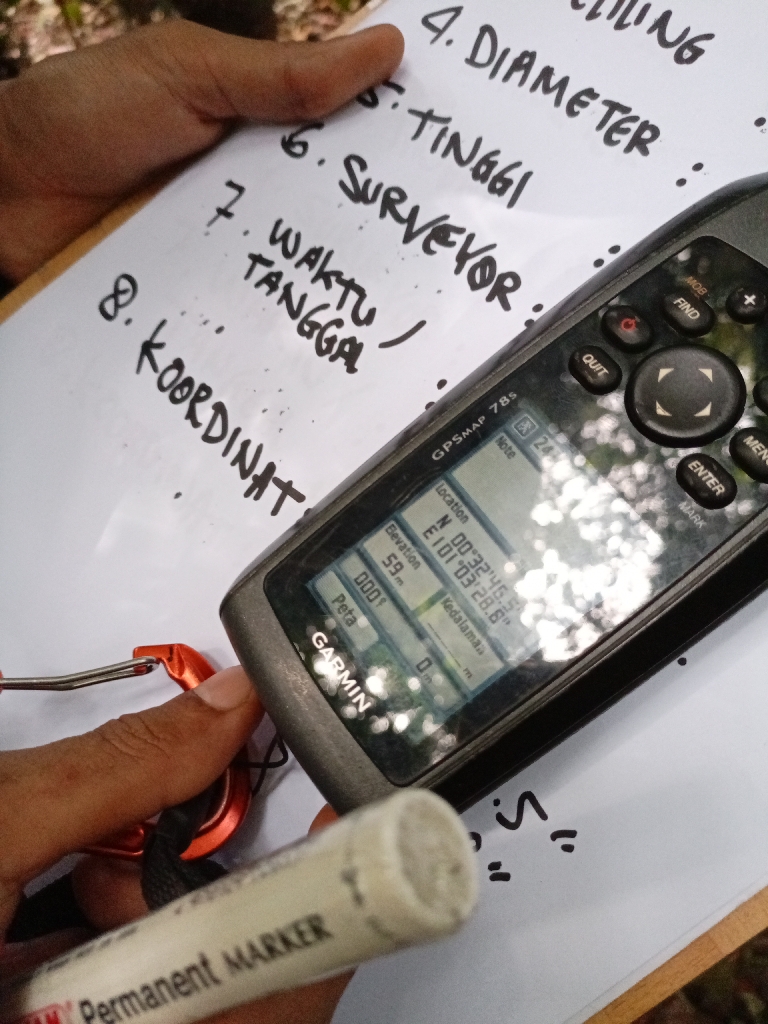 4. DIAMETER :
5. TINGGI :
6. SURVEYOR :
7. WAKTU /
TANGGAL :
8. KOORDINAT
.5"
"
MOB
FIND
+
QUIT
MENU
ENTER
MARK
GPSMAP 78s
Note
Location
N 00°32'45.5"
E101°03'28.6"
Elevation
59 m
Kedalaman
m
000°
0 m
Peta
GARMIN
Permanent MARKER